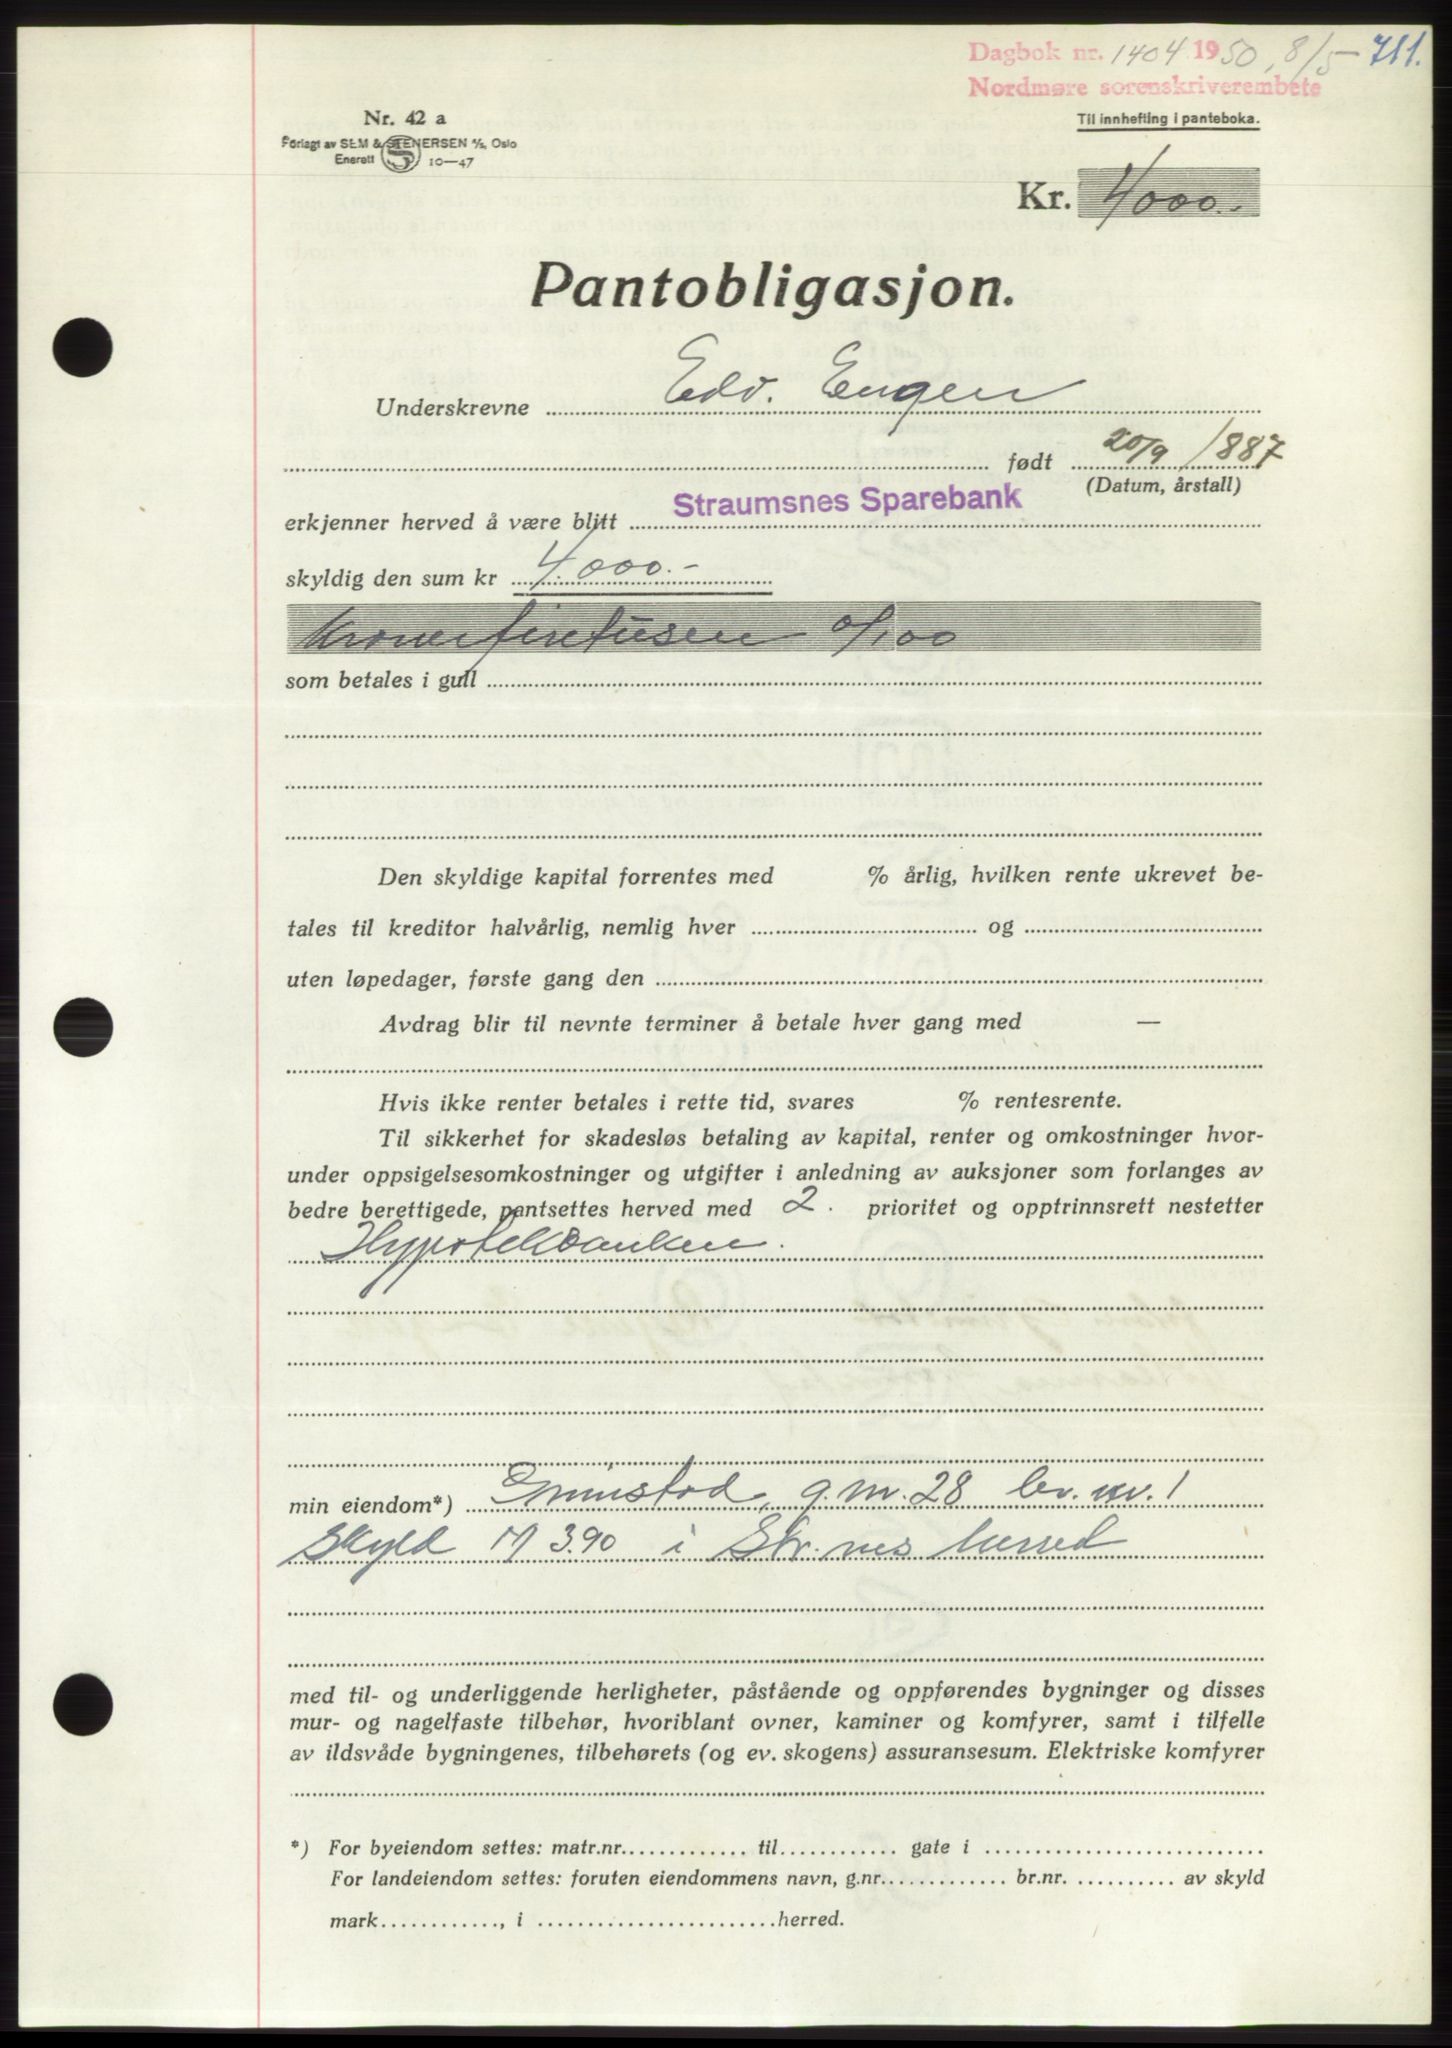 Dagbok nr. 1404 1950, 8/5 - 711.
Nordmøre sorenskriverembete
Nr. 42 a
Forlagt av SEM & STENERSEN A/S, Oslo
Enerett 10—47
Til innhefting i panteboka.
Kr. 4000.-
Pantobligasjon.
Underskrevne Edv. Engen
født 20/9 1887
(Datum, årstall)
erkjenner herved å være blitt Straumsnes Sparebank
skyldig den sum kr 4000.-
Kroner firetusen 0/100
som betales i gull
Den skyldige kapital forrentes med % årlig, hvilken rente ukrevet be-
tales til kreditor halvårlig, nemlig hver og
uten løpedager, første gang den
Avdrag blir til nevnte terminer å betale hver gang med —
Hvis ikke renter betales i rette tid, svares % rentesrente.
Til sikkerhet for skadesløs betaling av kapital, renter og omkostninger hvor-
under oppsigelsesomkostninger og utgifter i anledning av auksjoner som forlanges av
bedre berettigede, pantsettes herved med 2. prioritet og opptrinnsrett nestetter
Hypotekbanken.
min eiendom*) Grimstad, g.nr. 28 br. nr. 1
Skyld M 3.90 i Str.nes herred
med til- og underliggende herligheter, påstående og oppførendes bygninger og disses
mur- og nagelfaste tilbehør, hvoriblant ovner, kaminer og komfyrer, samt i tilfelle
av ildsvåde bygningenes, tilbehørets (og ev. skogens) assuransesum. Elektriske komfyrer
*) For byeiendom settes: matr.nr. til gate i
For landeiendom settes: foruten eiendommens navn, g.nr. br.nr. av skyld
mark , i herred.